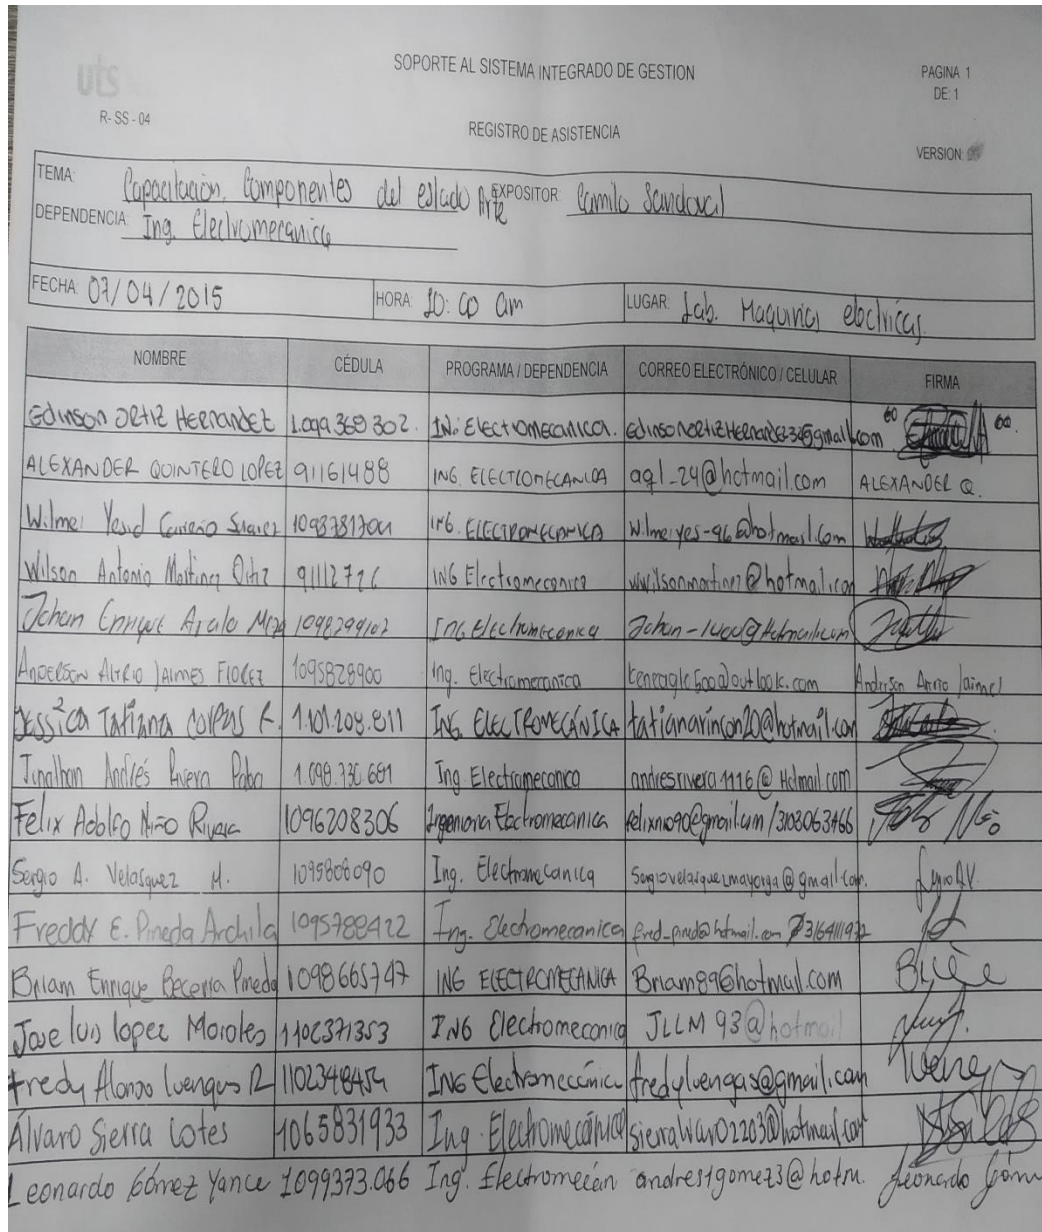 uts
SOPORTE AL SISTEMA INTEGRADO DE GESTION
PAGINA 1
DE: 1
R- SS - 04
REGISTRO DE ASISTENCIA
VERSION:
TEMA: Capacitación. Componentes del estado Arte EXPOSITOR: Camilo Sandoval
DEPENDENCIA: Ing. Electromecanica
FECHA: 07/04/2015 HORA: 10:00 am LUGAR: Lab. Maquinas electricas.
NOMBRE CÉDULA PROGRAMA / DEPENDENCIA CORREO ELECTRÓNICO / CELULAR FIRMA
Edinson ORTIZ HERNANDEZ 1.099 369 302. IN. ELECTROMECANICA.
ALEXANDER QUINTERO LOPEZ 91161488 ING. ELECTROMECANICA aql_24@hotmail.com ALEXANDER Q.
Yesid ING. ELECTROMECANICA
Wilson Antonio Martinez Ortiz ING Electromecanica
Johan Enrique Ayala ING Electromecanica
ANDERSON JAIMES FLOREZ 1095828900 Ing. Electromecanica Anderson Jaimes
TATIANA 1.101.208.811 ING. ELECTROMECÁNICA tatianarincon20@hotmail.com
Jonathan Andrés Rivera 1.098.736.681 Ing. Electromecanica andresrivera1116@Hotmail.com
Felix Adolfo Niño Rivera 1096208306 Ingenieria Electromecanica felixnio90@gmail.com /3103063466
Sergio A. Velasquez M. 1095808090 Ing. Electromecanica Sergiovelasquezmayorga@gmail.com.
Freddy E. Pineda Archila 1095788422 Ing. Electromecanica
Briam Enrique Becerra Pineda 1098665747 ING ELECTROMECANICA Briam89@hotmail.com
Jose luis lopez Morales 1102371353 ING Electromecanica JLLM93@hotmail
Fredy Alonso Luengas R 1102348454 ING Electromecánica fredyluengas@gmail.com
Álvaro Sierra Cotes 1065831933 Ing. Electromecánica
Leonardo Gómez Yance 1099373.066 Ing. Electromecán andrestgomez3@hotm. Leonardo Góm